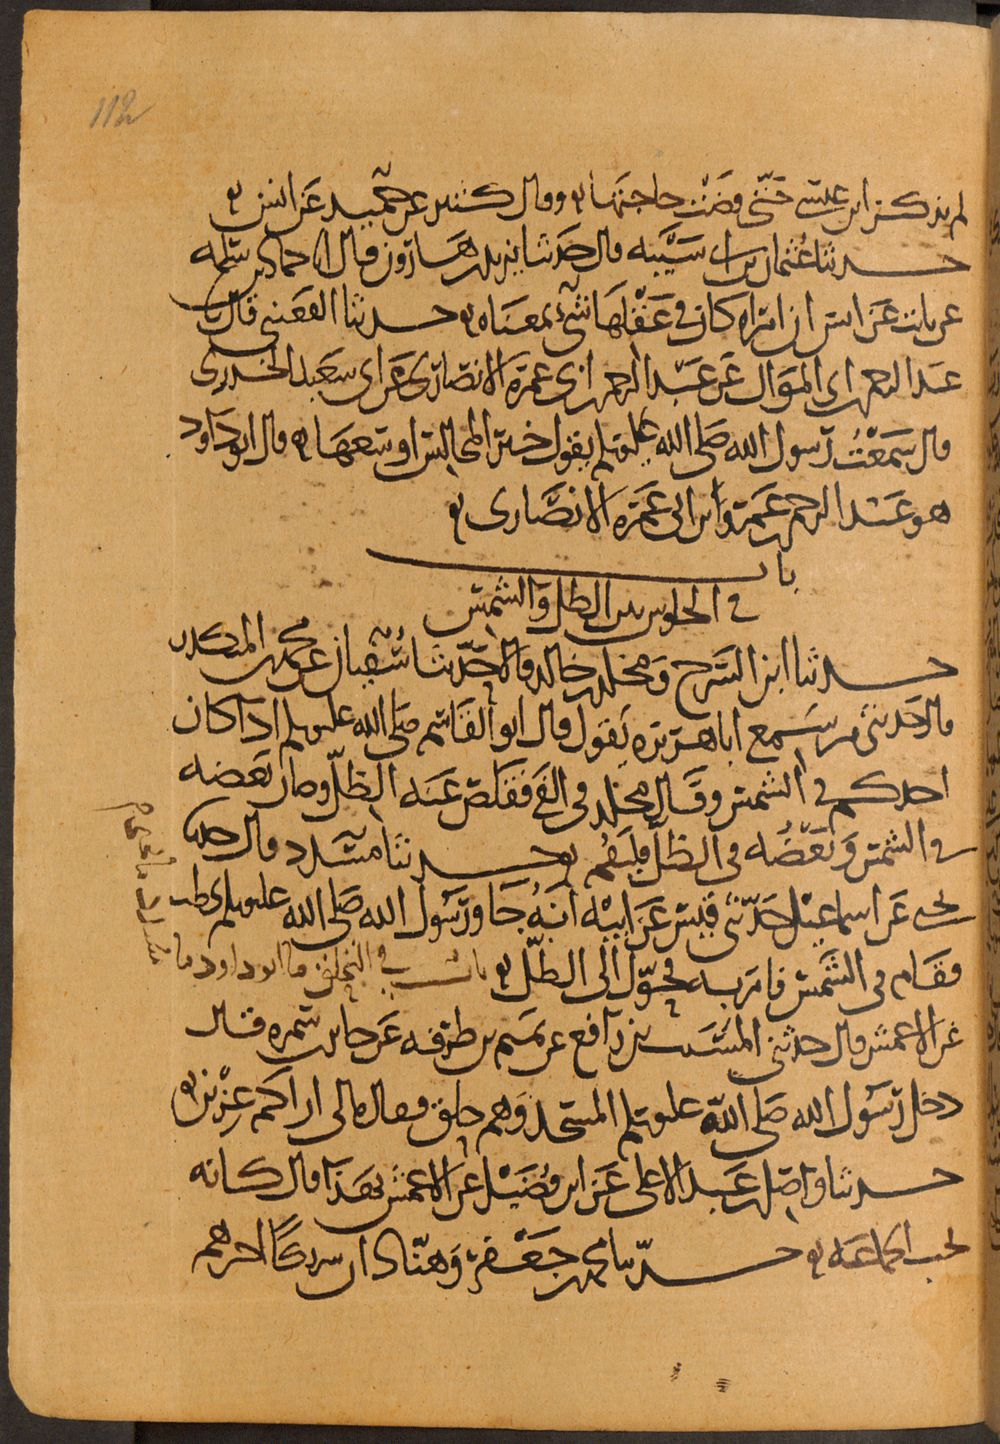 112
لم يذكر ابن عيسى حتى قضت حاجتها وقال كثير عن حميد عن انس
حدثنا عثمان بن ابي شيبة قال حدثنا يزيد بن هارون قال انا حماد بن سلمه
عن ثابت عن انس ان امراه كان في عقلها شيء بمعناه حدثنا القعنبي قال نا
عبد الرحمن بن ابي الموال عن عبد الرحمن بن ابي عمرة الانصاري عن ابي سعيد الخدري
قال سمعت رسول الله صلى الله عليه وسلم يقول خير المجالس اوسعها قال ابو داود
هو عبد الرحمن بن عمرو بن ابي عمرة الانصاري
باب
في الجلوس بين الظل والشمس
حدثنا ابن السرح ومخلد بن خالد قالا حدثنا سفيان عن محمد بن المنكدر
قال حدثني من سمع ابا هريرة يقول قال ابو القاسم صلى الله عليه وسلم اذا كان
احدكم في الشمس وقال مخلد في الفي فقلص عنه الظل وصار بعضه
في الشمس وبعضه في الظل فليقم حدثنا مسدد قال حدثنا
يحيى عن اسماعيل حدثني قيس عن ابيه انه جا ورسول الله صلى الله عليه وسلم يخطب
فقام في الشمس فامر به فحول الى الظل باب في التحلق قال ابو داود نا
مسدد نا يحيى
عن الاعمش قال حدثني المسيب بن رافع عن تميم بن طرفه عن جابر بن سمره قال
دخل رسول الله صلى الله عليه وسلم المسجد وهم حلق فقال مالي اراكم عزين
حدثنا واصل بن عبد الاعلى عن ابن فضيل عن الاعمش بهذا قال كانه
يحب الجماعه حدثنا محمد بن جعفر وهناد ان شريكا اخبرهم